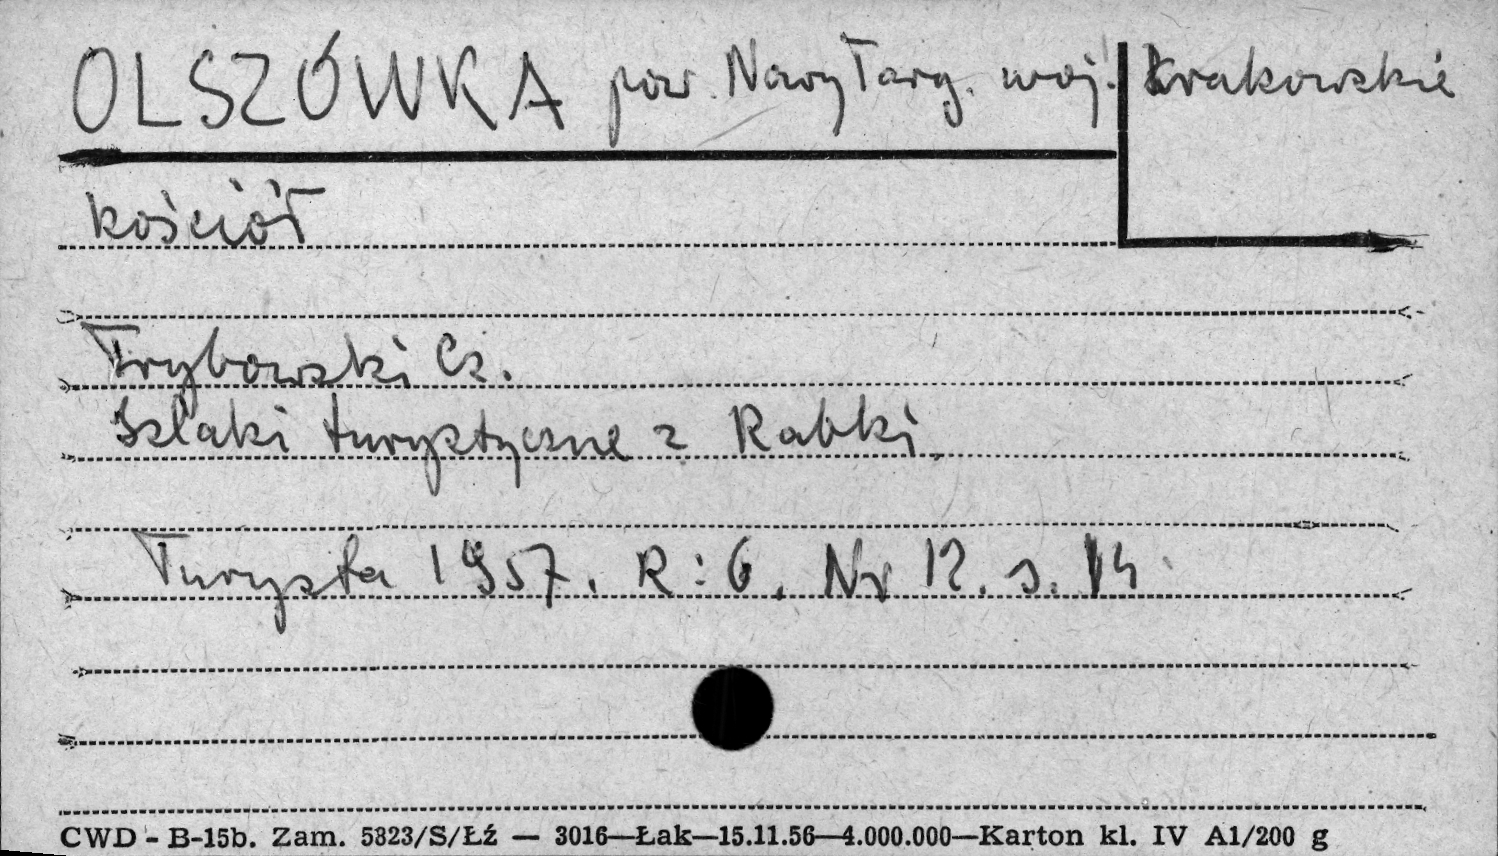 OLSZÓWKA pow. Nowy Targ. woj. krakowskie
kościół
Trybowski Cz.
Szlaki turystyczne z Rabki.
Turysta 1957. R: 6. Nr 12. s. 14
CWD - B-15b. Zam. 5823/S/Łź — 3016—Łak—15.11.56—4.000.000—Karton kl. IV A1/200 g